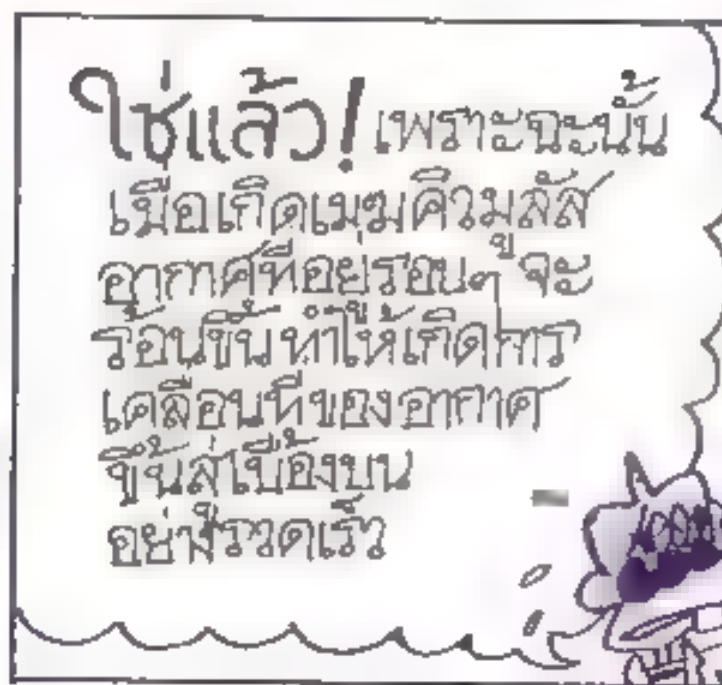 ใช่แล้ว! เพราะฉะนั้น
เมื่อเกิดเมฆคิวมูลัส
อากาศที่อยู่รอบๆ จะ
ร้อนขึ้นทำให้เกิดการ
เคลื่อนที่ของอากาศ
ขึ้นสู่เบื้องบน
อย่างรวดเร็ว